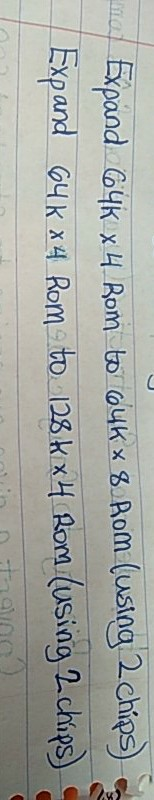 Expand 64K x 4 Rom to 64K x 8 Rom (using 2 chips)
Expand 64K x 4 Rom to 128K x 4 Rom (using 2 chips)